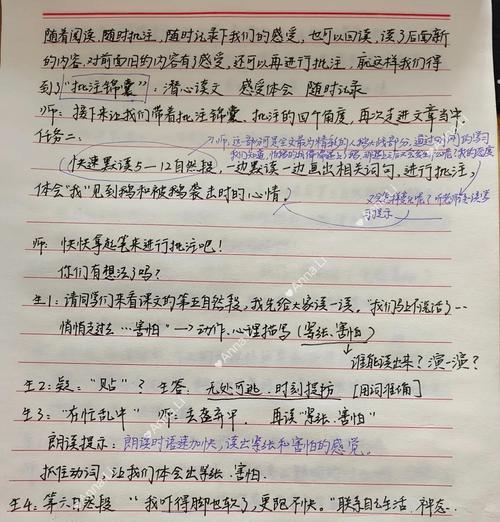 随着阅读，随时批注，随时记录下我们的感受，也可以回读，读了后面新
的内容，对前面旧的内容有了感受，还可以再进行批注，就这样我们得
到了"批注锦囊"：潜心读文 感受体会 随时记录
师：接下来让我们带着批注锦囊、批注的四个角度，再次走进文章当中
任务二：
(快速默读5-12自然段，一边默读一边画出相关词句，进行批注，
体会"我"见到鹅和被鹅袭击时的心情。)
师：快快拿起笔来进行批注吧！
你们有想法了吗？
生1：请同学们来看课文的第五自然段，我先给大家读一读。"我们马上不说话了…
悄悄走过去…害怕"→动作、心理描写(紧张、害怕)
谁能读出来？演一演？
生2：疑："贴"？ 生答：无处可逃、时刻提防 [用词准确]
生3："在忙乱中" 师：丢盔弃甲， 再读"紧张、害怕"
朗读提示：朗读时语速加快，读出紧张和害怕的感觉。
抓住动词，让我们体会出紧张、害怕.
生4：第六自然段 "我吓得脚也软了，更跑不快。"联系自己生活，神态.
Anna Li
Anna Li
Anna Li
Anna Li